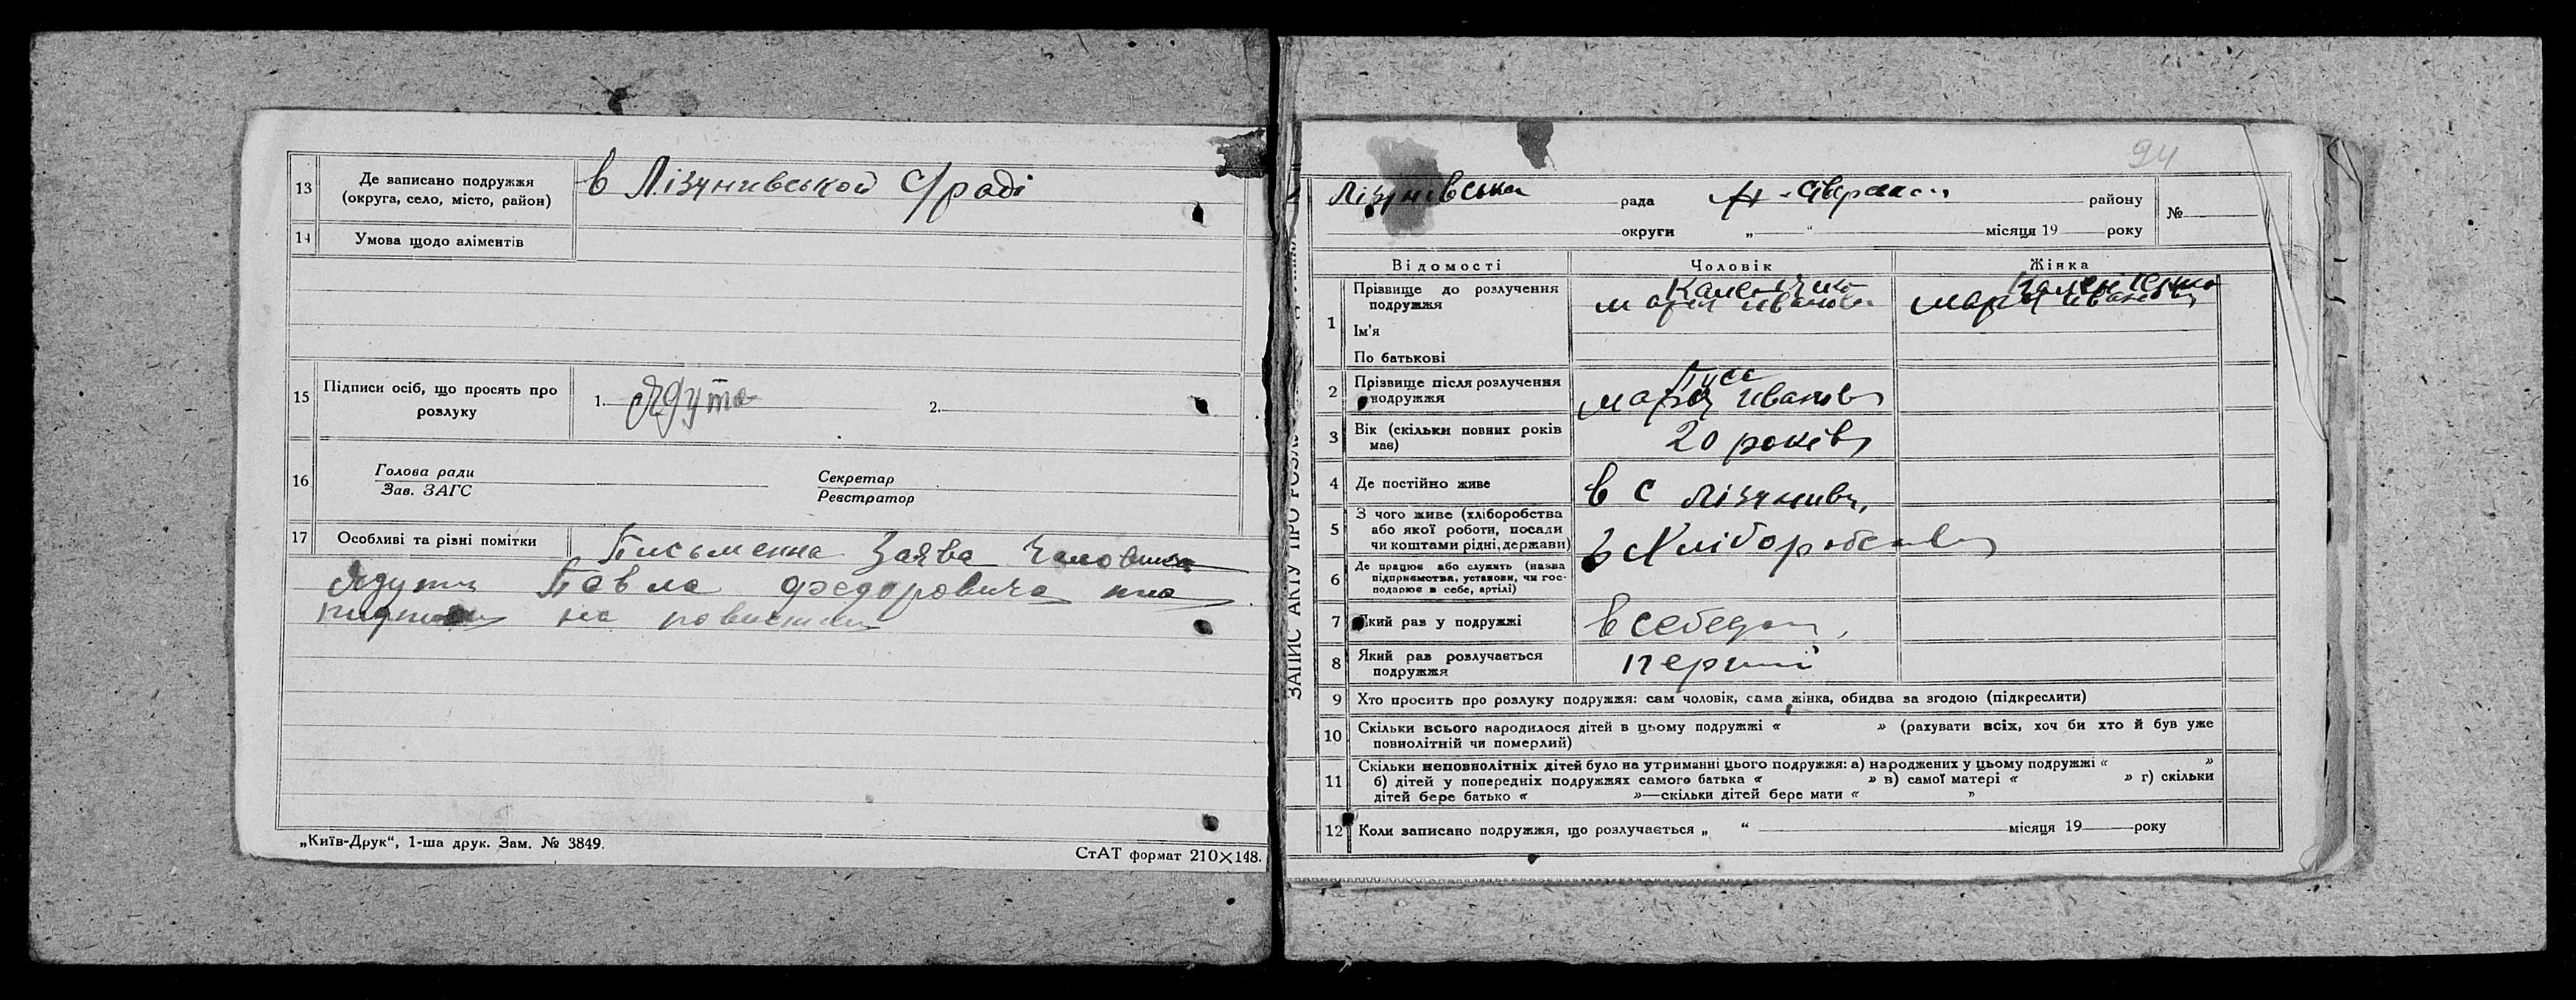 13 Де записано подружжя в Лізунивської С/раді
(округа, село, місто, район)
14 Умова щодо аліментів
15 Підписи осіб, що просять про 1. Ядута 2.
розлуку
16 Голова ради Секретар
Зав. ЗАГС Реєстратор
17 Особливі та різні помітки Письменна Заява Чаловика
Ядути Павла Федоровича
на
„Київ-Друк“, 1-ша друк. Зам. № 3849.
СтАТ формат 210×148.
94
Лізунівська рада Н-Сіверськ району №
округи „ “ місяця 19 року
ЗАПИС АКТУ ПРО
Відомості Чоловік Жінка
1 Прізвище до розлучення
подружжя Мария Иванова Мария Иванов
Ім'я
По батькові
2 Прізвище після розлучення Гусь
подружжя Мария Иванов
3 Вік (скільки повних років 20 років
має)
4 Де постійно живе в с Лізунивц
5 З чого живе (хліборобства
або якої роботи, посади з Хліборобства
чи коштами рідні, держави)
6 Де працює або служить (назва
підприємства, установи, чи гос-
подарює в себе, артілі)
7 Який раз у подружжі в себе
8 Який раз розлучається перший
подружжя
9 Хто просить про розлуку подружжя: сам чоловік, сама жінка, обидва за згодою (підкреслити)
10 Скільки всього народилося дітей в цьому подружжі « » (рахувати всіх, хоч би хто й був уже
повнолітній чи померлий)
11 Скільки неповнолітніх дітей було на утриманні цього подружжя: а) народжених у цьому подружжі « »
б) дітей у попередніх подружжях самого батька « » в) самої матері « » г) скільки
дітей бере батько « »—скільки дітей бере мати « »
12 Коли записано подружжя, що розлучається „ “ місяця 19 року